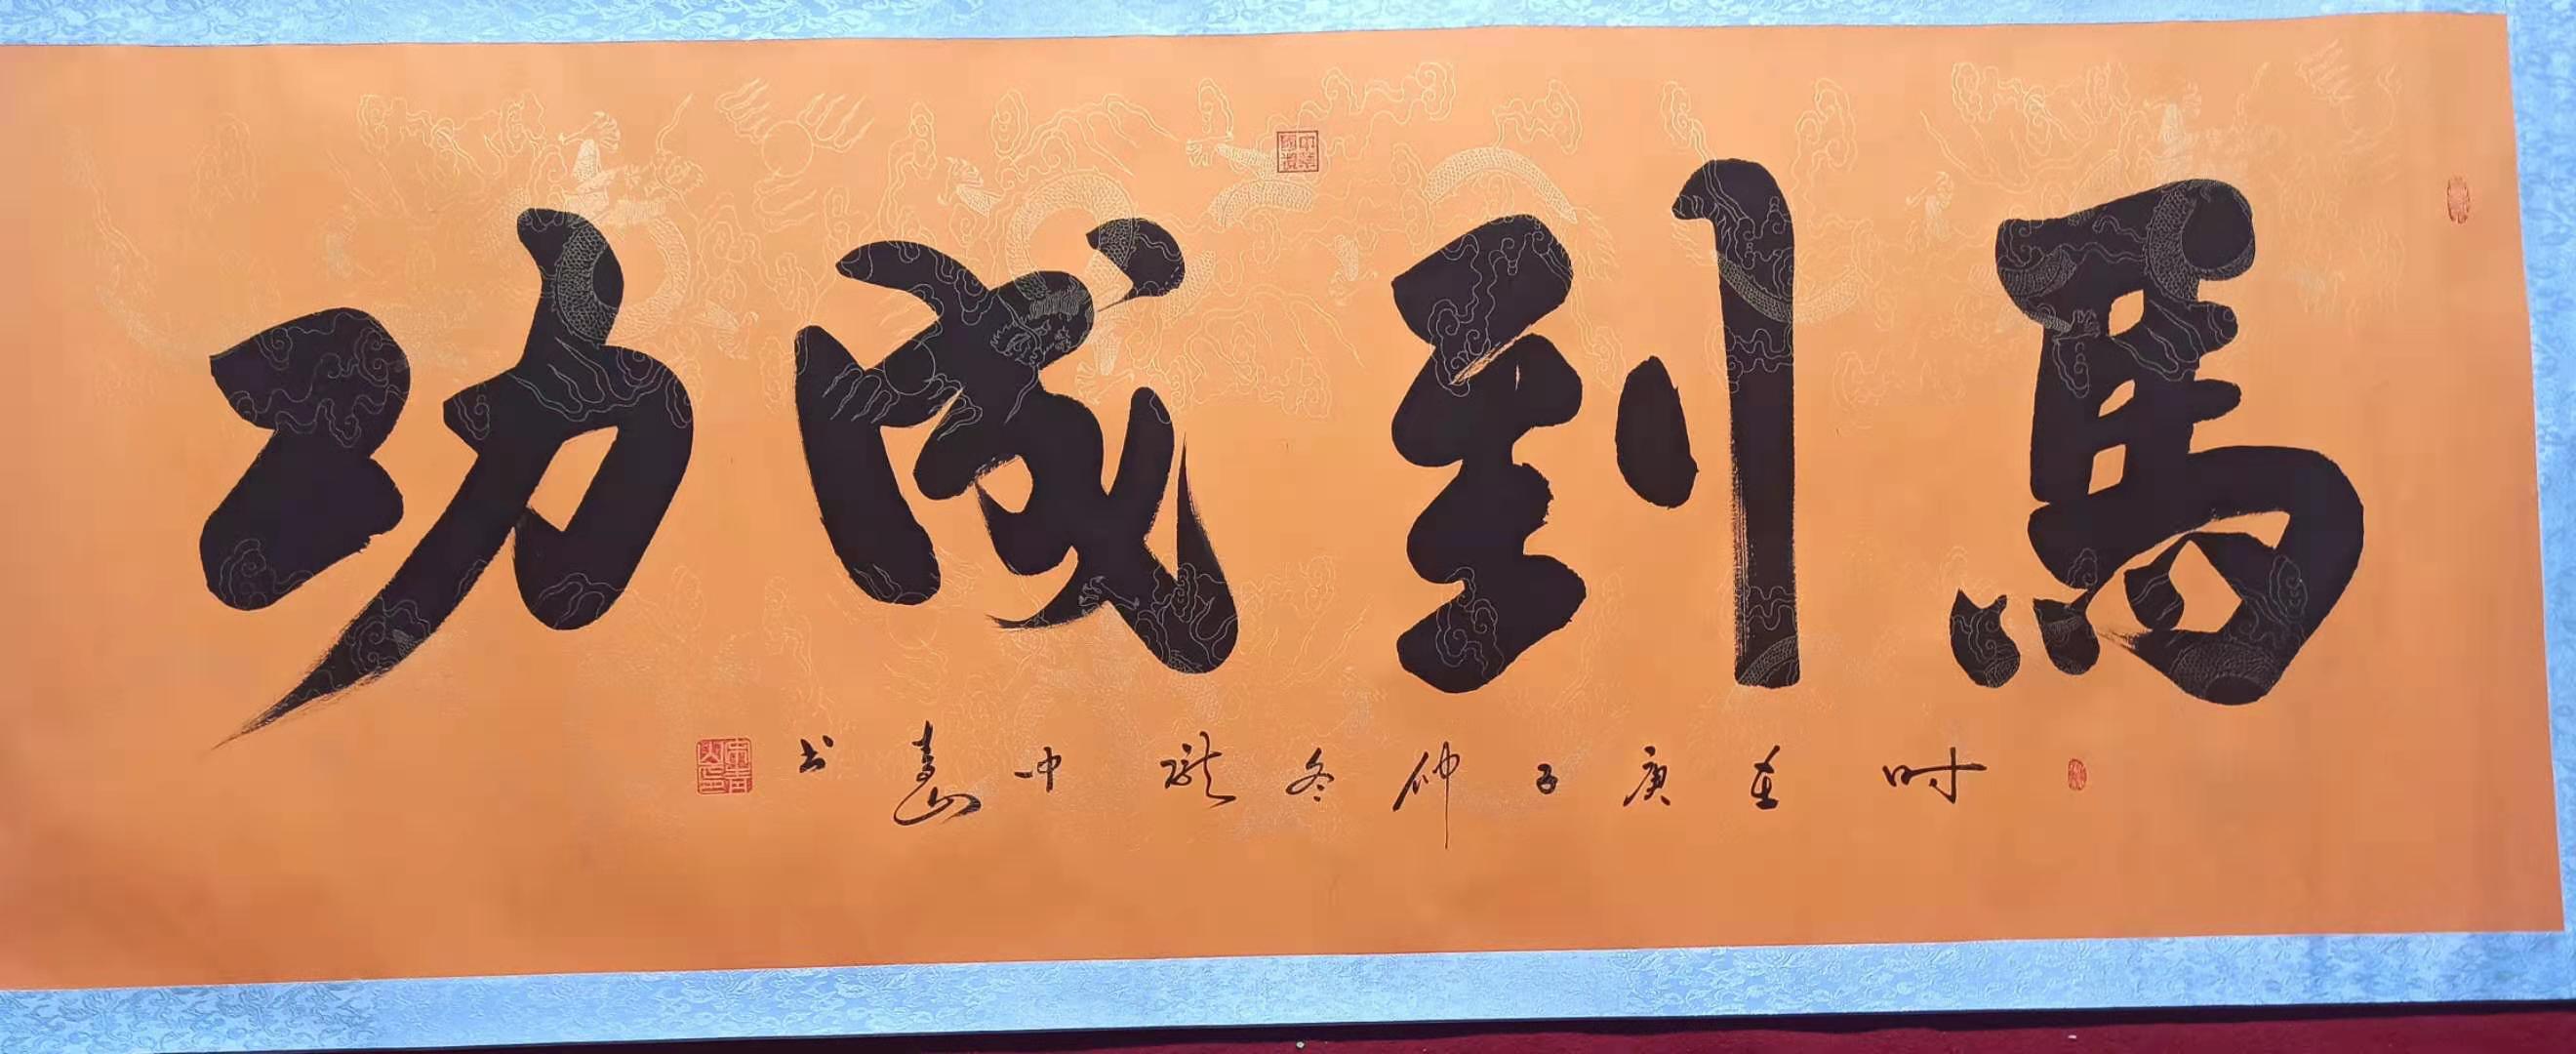 馬到成功
时在庚子仲冬中青山书